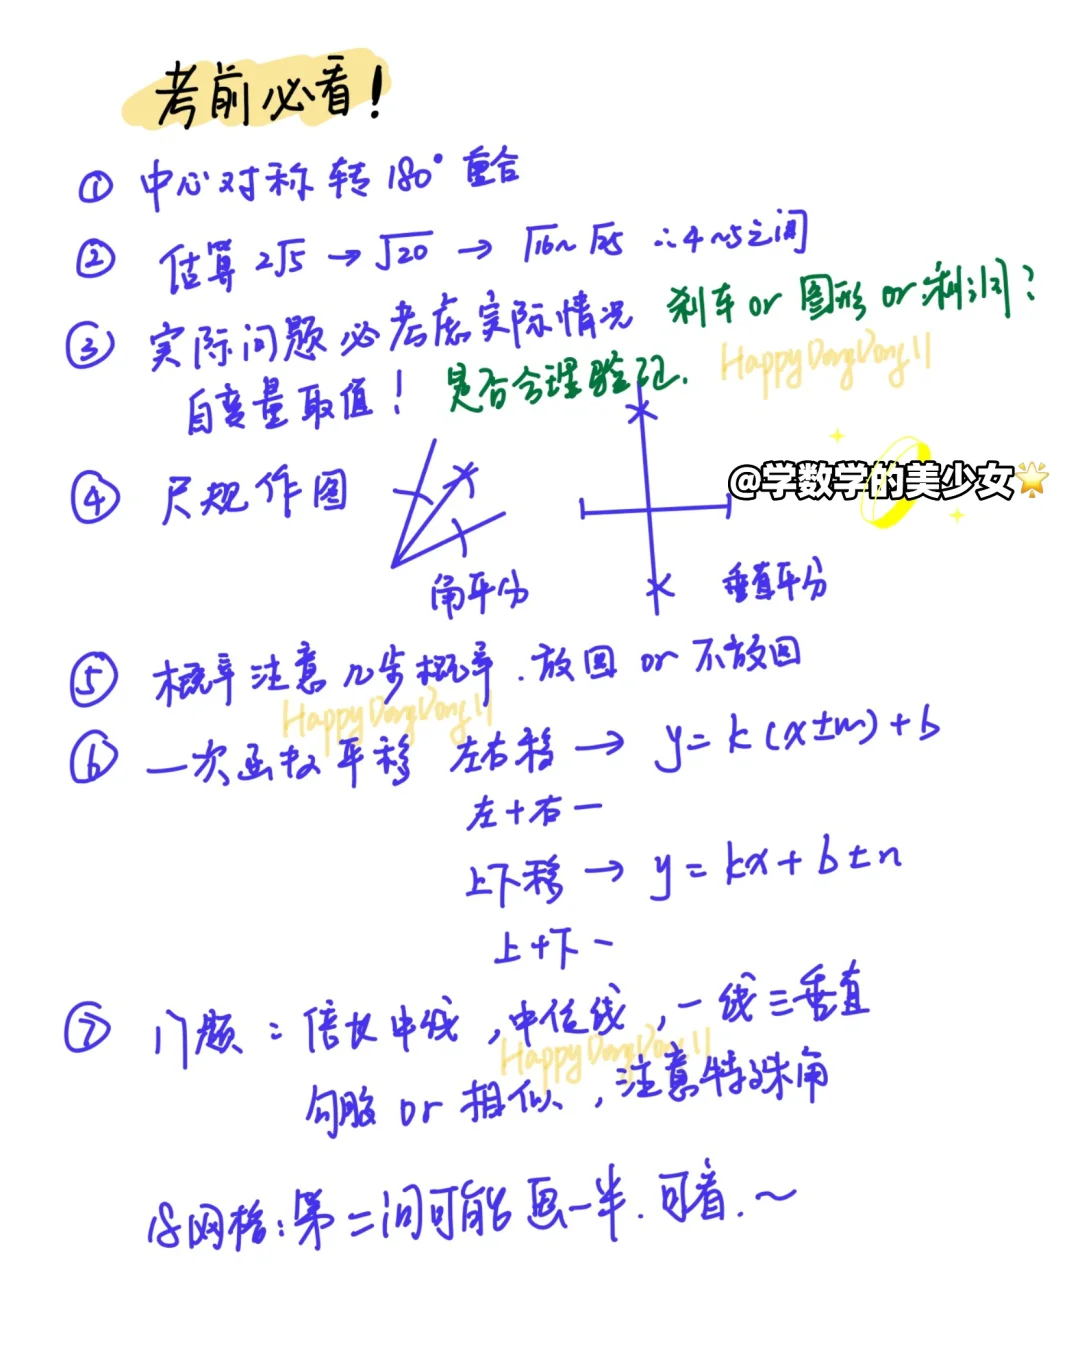 考前必看!
① 中心对称 转180°重合
② 估算 2√5 → √20 → √16~√25 ∴4~5之间
③ 实际问题必考虑实际情况 刹车 or 图形 or 利润?
自变量取值! 是否合理验证.
HappyDongDong11
④ 尺规作图
@学数学的美少女
角平分 垂直平分
⑤ 概率注意几步概率. 放回 or 不放回
HappyDongDong11
⑥ 一次函数平移 左右移 → y=k(x±m)+b
左+右-
上下移 → y=kx+b±n
上+下-
⑦ 17题: 倍长中线,中位线,一线三垂直
HappyDongDong11
勾股 or 相似,注意特殊角
18网格:第二问可能画一半.可着.~